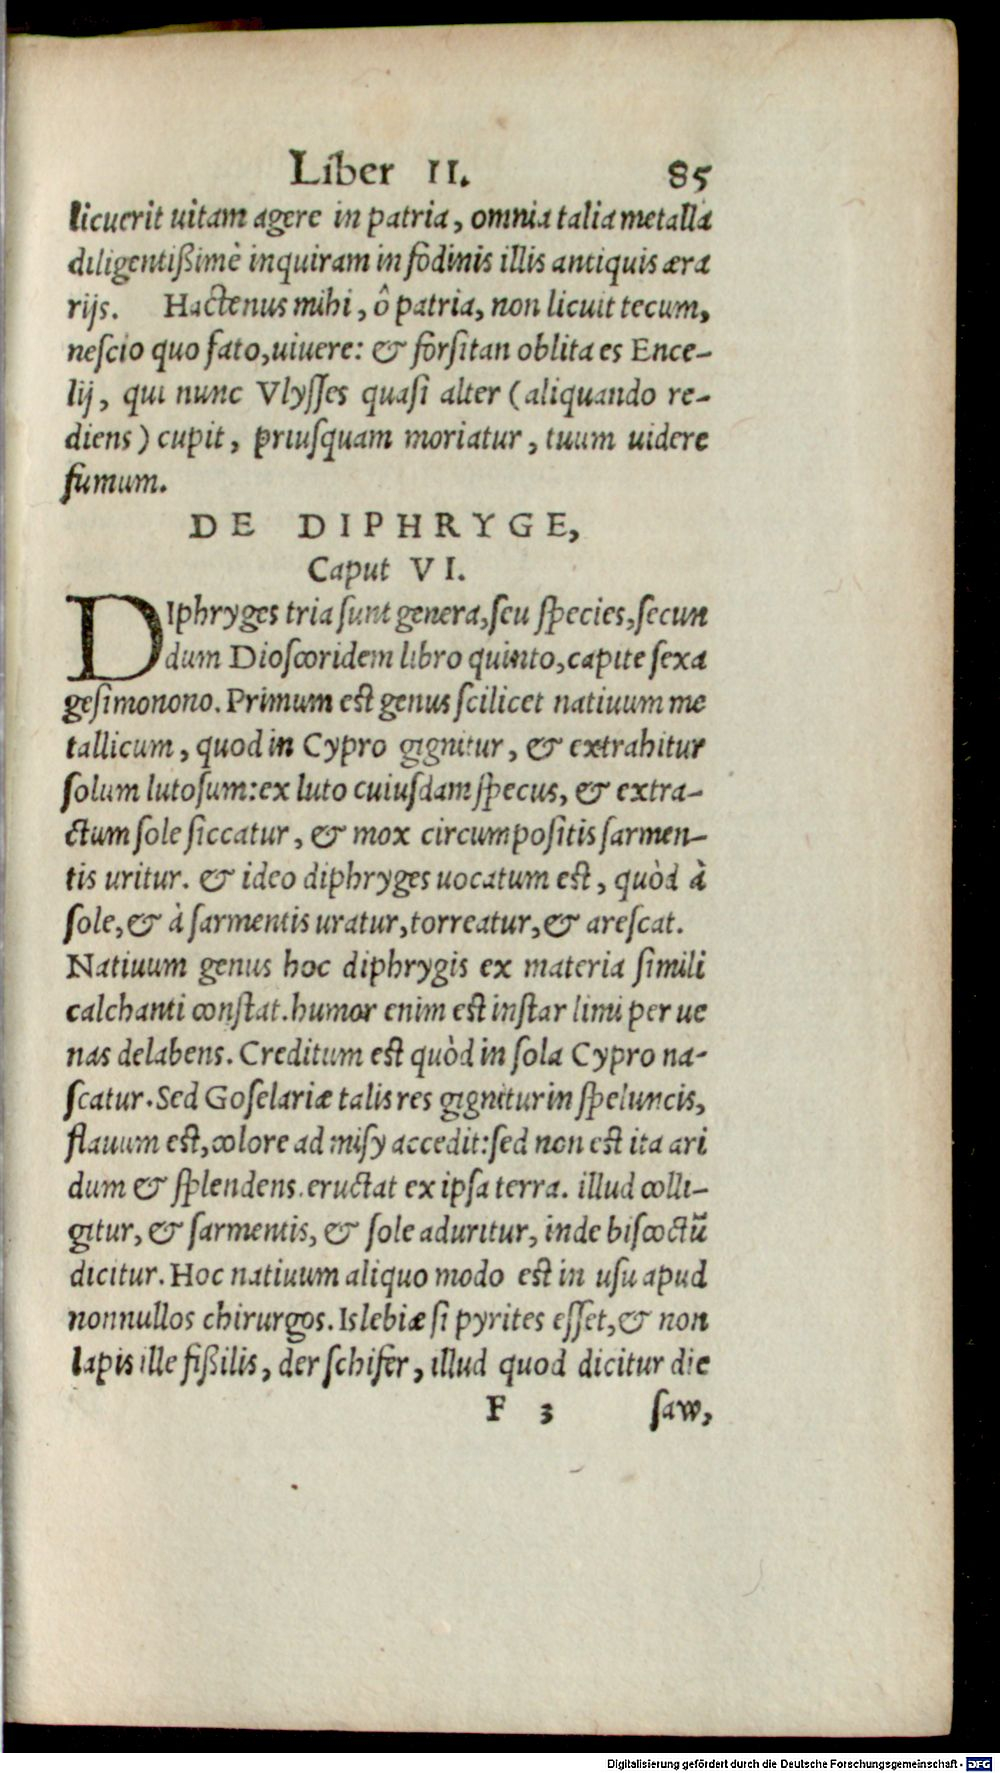 Liber II. 85
licuerit uitam agere in patria, omnia talia metalla
diligentißimè inquiram in fodinis illis antiquis æra
rijs. Hactenus mihi, ô patria, non licuit tecum,
neſcio quo fato, uiuere: & forſitan oblita es Ence-
lij, qui nunc Vlyſſes quaſi alter (aliquando re-
diens) cupit, priuſquam moriatur, tuum uidere
fumum.
DE DIPHRYGE,
Caput VI.
DIphryges tria ſunt genera, ſeu ſpecies, ſecun
dum Dioſcoridem libro quinto, capite ſexa
geſimonono. Primum eſt genus ſcilicet natiuum me
tallicum, quod in Cypro gignitur, & extrahitur
ſolum lutoſum: ex luto cuiuſdam ſpecus, & extra-
ctum ſole ſiccatur, & mox circumpoſitis ſarmen-
tis uritur. & ideo diphryges uocatum eſt, quòd à
ſole, & à ſarmentis uratur, torreatur, & areſcat.
Natiuum genus hoc diphrygis ex materia ſimili
calchanti conſtat. humor enim eſt inſtar limi per ue
nas delabens. Creditum eſt quòd in ſola Cypro na-
ſcatur. Sed Goſelariæ talis res gignitur in ſpeluncis,
flauum eſt, colore ad miſy accedit: ſed non eſt ita ari
dum & ſplendens. eructat ex ipſa terra. illud colli-
gitur, & ſarmentis, & ſole aduritur, inde biſcoctũ
dicitur. Hoc natiuum aliquo modo eſt in uſu apud
nonnullos chirurgos. Islebiæ ſi pyrites eſſet, & non
lapis ille fißilis, der ſchifer, illud quod dicitur die
F 3 ſaw,
Digitalisierung gefördert durch die Deutsche Forschungsgemeinschaft - DFG